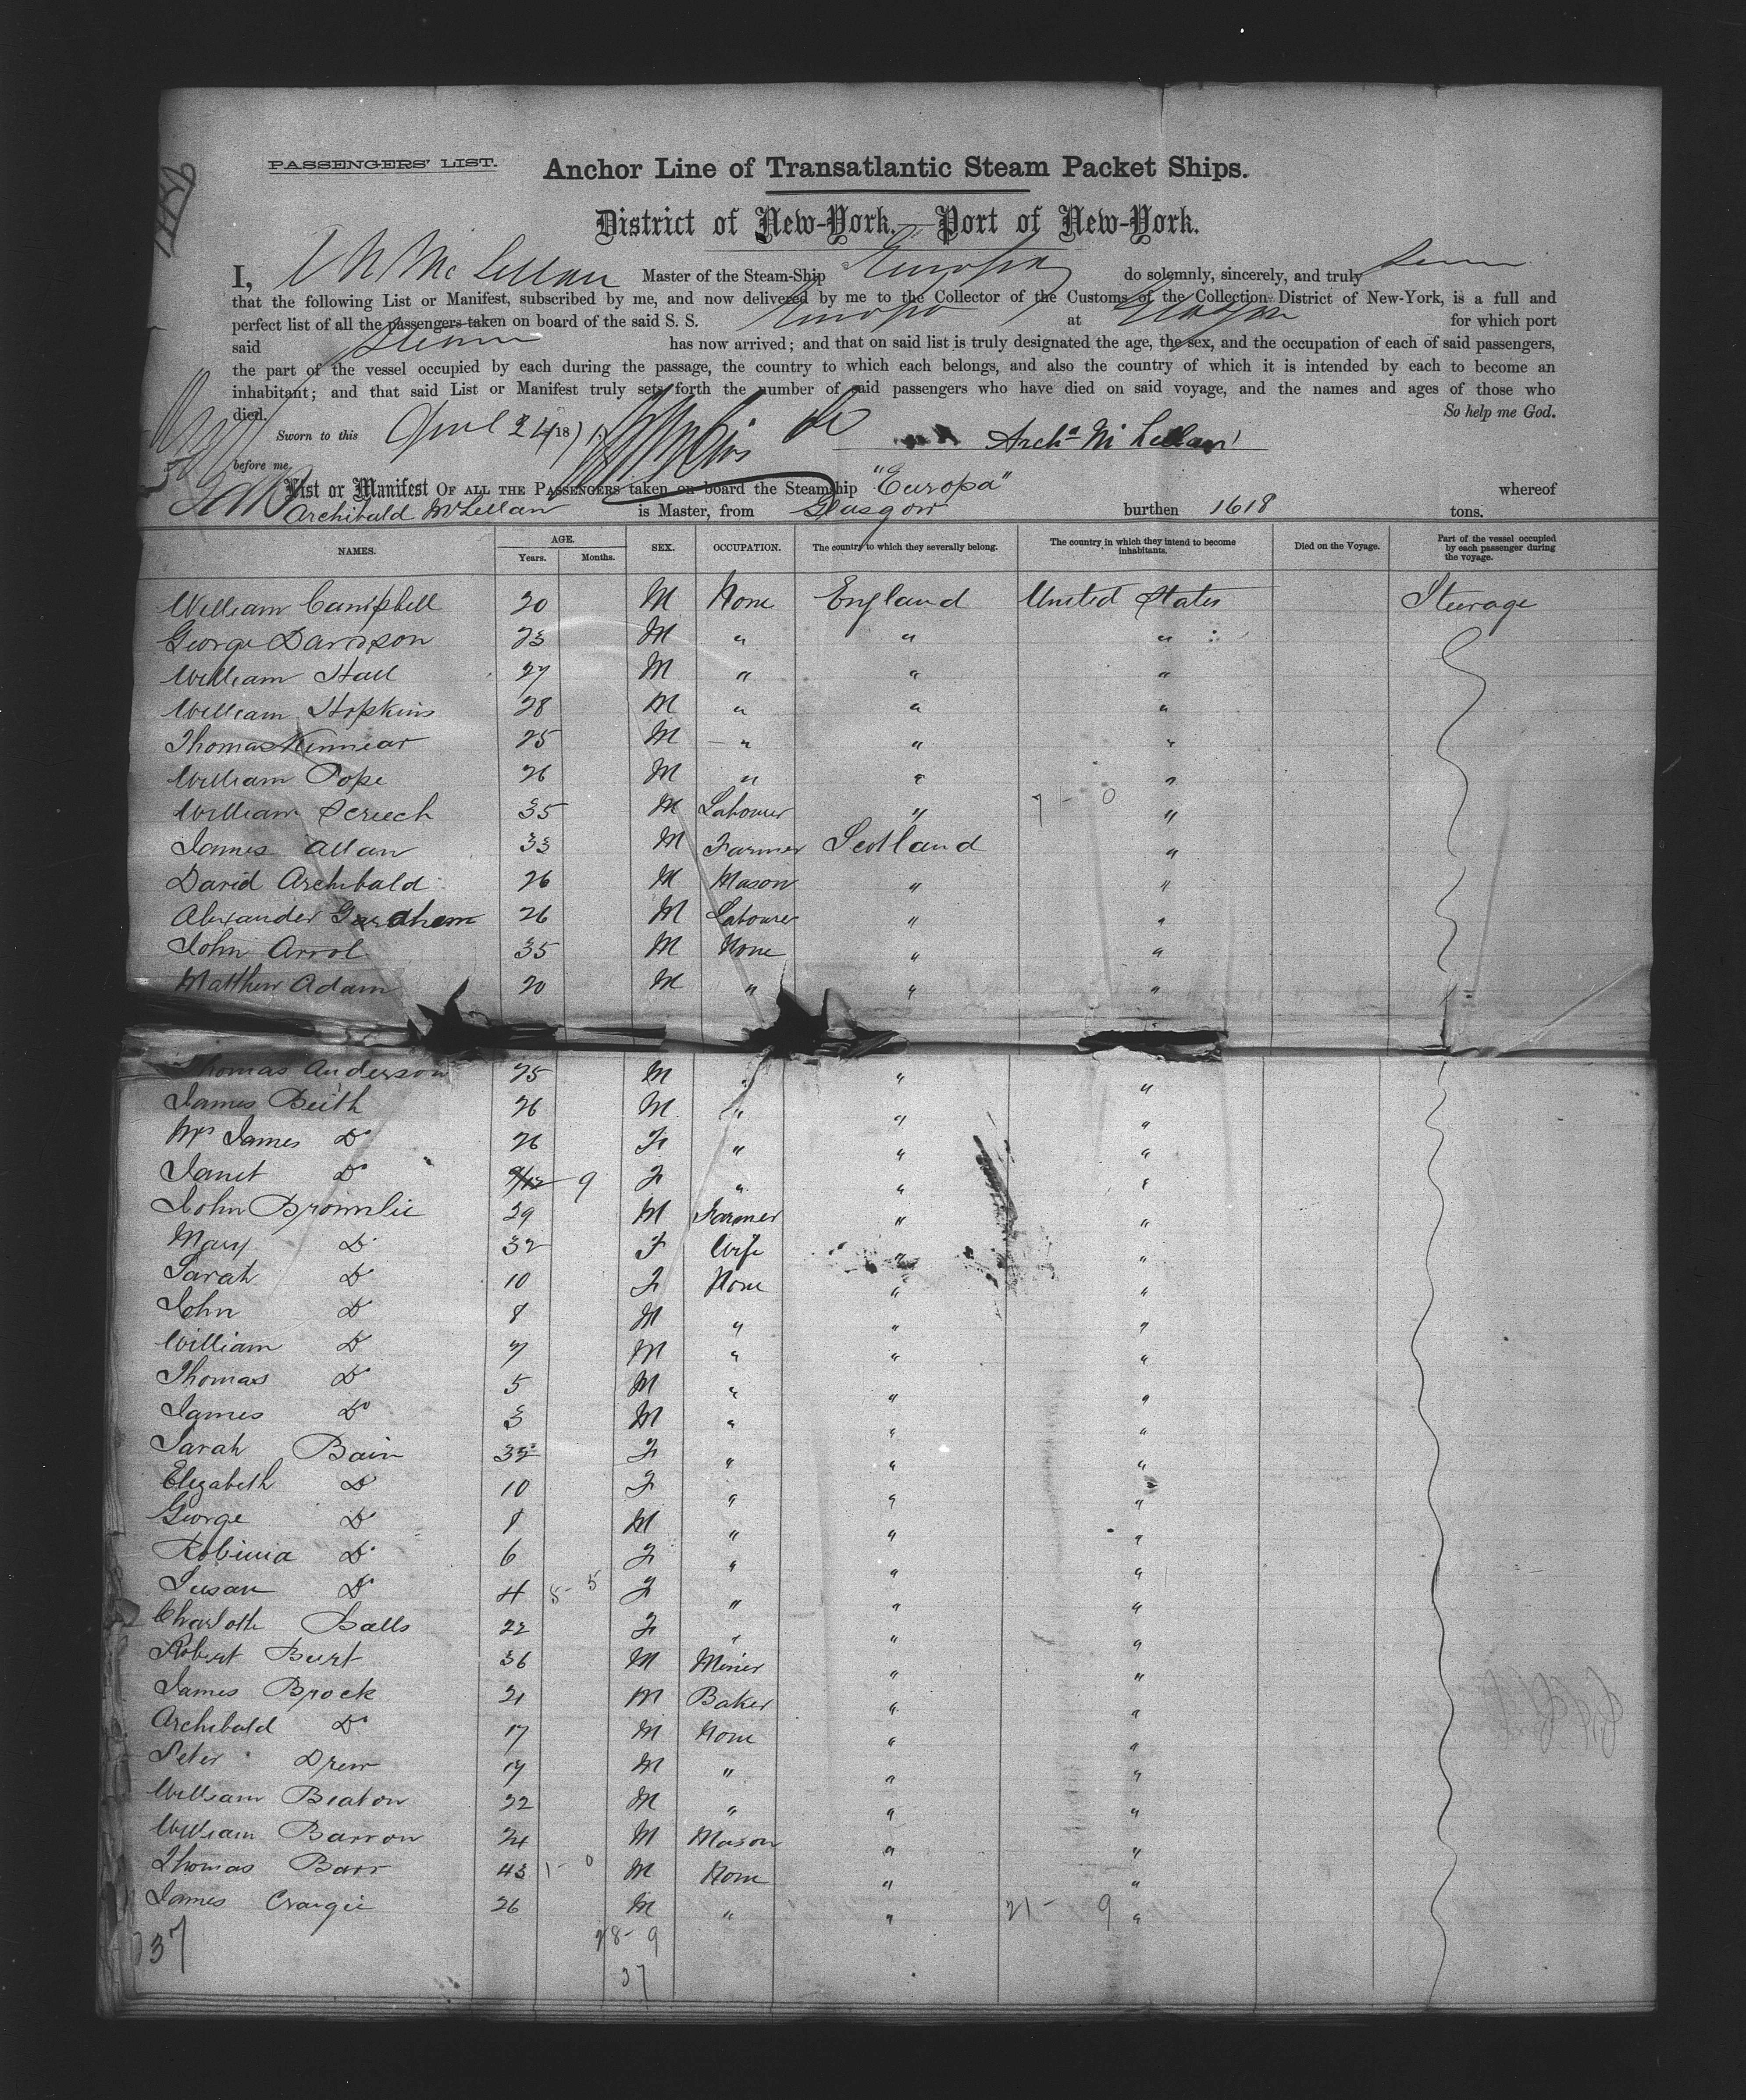 PASSENGERS' LIST.
Anchor Line of Transatlantic Steam Packet Ships.
District of New-York.—Port of New-York.
I, McLellan Master of the Steam-Ship Europa do solemnly, sincerely, and truly
that the following List or Manifest, subscribed by me, and now delivered by me to the Collector of the Customs of the Collection District of New-York, is a full and
perfect list of all the passengers taken on board of the said S. S. Europa at Glasgow for which port
said Steamer has now arrived; and that on said list is truly designated the age, the sex, and the occupation of each of said passengers,
the part of the vessel occupied by each during the passage, the country to which each belongs, and also the country of which it is intended by each to become an
inhabitant; and that said List or Manifest truly sets forth the number of said passengers who have died on said voyage, and the names and ages of those who
died. So help me God.
Sworn to this April 24 187
before me Archd McLellan
List or Manifest OF ALL THE PASSENGERS taken on board the Steamship "Europa" whereof
Archibald McLellan is Master, from Glasgow burthen 1618 tons.
NAMES. AGE. Years. Months. SEX. OCCUPATION. The country to which they severally belong. The country in which they intend to become inhabitants. Died on the Voyage. Part of the vessel occupied by each passenger during the voyage.
William Campbell 20 M None England United States Steerage
George Davidson 23 M " " "
William Hall 27 M " " "
William Hopkins 28 M " " "
Thomas Kinnear 25 M " " "
William Pope 26 M " " "
William Screech 35 M Labourer " 7 - 0 "
James Allan 33 M Farmer Scotland "
David Archibald 26 M Mason " "
Alexander 26 M Labourer " "
John Arrol 35 M None " "
Matthew Adam 20 M " " "
Thomas Anderson 25 M " " "
James Beith 26 M " " "
Mrs James Do 26 F " " "
Janet Do 9/12 9 F " " "
John Brownlie 29 M Farmer " "
Mary Do 32 F Wife " "
Sarah Do 10 F None " "
John Do 8 M " " "
William Do 7 M " " "
Thomas Do 5 M " " "
James Do 3 M " " "
Sarah Bain 32 F " " "
Elizabeth Do 10 F " " "
George Do 8 M " " "
Robinia Do 6 F " " "
Susan Do 4 5 - 5 F " " "
Charlotte Balls 22 F " " "
Robert Burt 36 M Miner " "
James Brock 21 M Baker " "
Archibald Do 17 M None " "
Peter Drew 17 M " " "
William Beaton 22 M " " "
William Barron 24 M Mason " "
Thomas Barr 43 1 - 0 M None " "
James Craigie 26 M " " 21 - 9 "
37 28 - 9
37